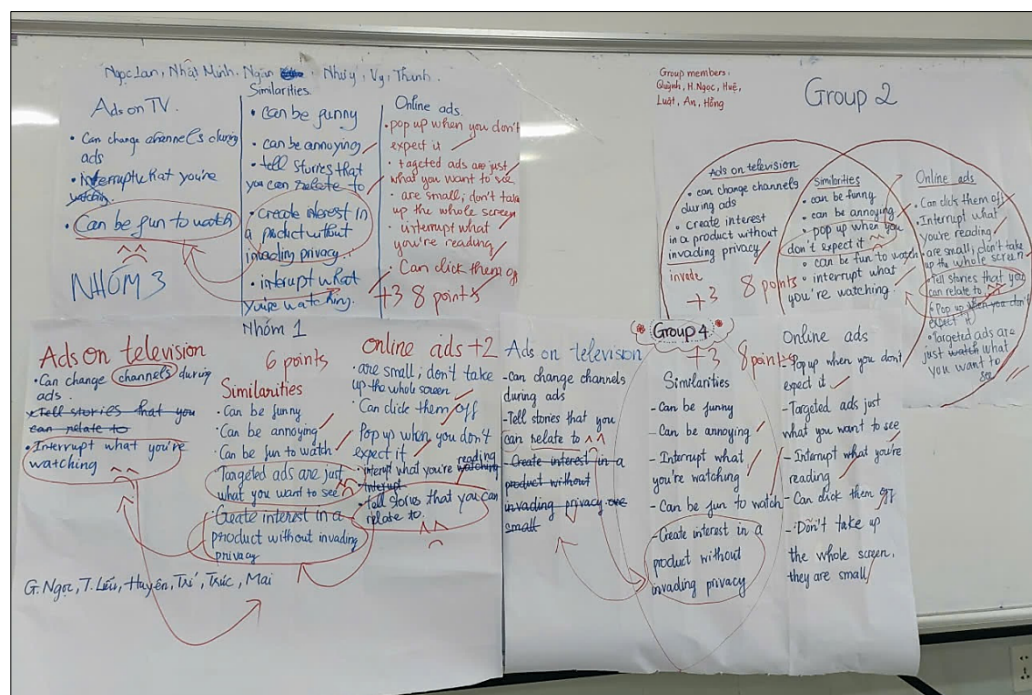 Ngọc Lan, Nhật Minh, Ngân, Như ý, Vy, Thanh.
Ads on TV.
• Can change channels during
ads
• interrupt what you're
watching.
• Can be fun to watch
NHÓM 3
Similarities
• can be funny
• can be annoying
• tell stories that
you can relate to
• create interest in
a product without
invading privacy.
• interrupt what
you're watching.
Online ads.
• pop up when you don't
expect it
• tageted ads are just
what you want to see
• are small; don't take
up the whole screen
• interrupt what
you're reading
• Can click them off
+3 8 points
Group members:
Quỳnh, H.Ngọc, Huệ,
Luật, An, Hồng
Group 2
Ads on television
• can change channels
during ads
• create interest
in a product without
invading privacy
invade
+3 8 points
Similarities
• can be funny
• can be annoying
• pop up when you
don't expect it
• can be fun to watch
• interrupt what
you're watching
Online ads
• Can click them off
• Interrupt what
you're reading
• are small; don't take
up the whole screen
• Tell stories that you
can relate to
• Pop up when you don't
expect it
• Targeted ads are
just watch what
you want to
see
Nhóm 1
Ads on television
• Can change channels during
ads
• Tell stories that you
can relate to
• Interrupt what you're
watching
6 points
Similarities
• Can be funny
• Can be annoying
• Can be fun to watch
Targeted ads are just
what you want to see
• Create interest in a
product without invading
privacy
Online ads +2
• are small; don't take
up the whole screen
• Can click them off
Pop up when you don't
expect it
reading
• interupt what you're watching
• tell stories that you can
relate to.
G. Ngọc, T. Liễu, Huyền, Trí, Trúc, Mai
Group 4
+3 8 points
Ads on television
- can change channels
during ads
- Tell stories that you
can relate to
- Create interest in a
product without
invading privacy are
small
Similarities
- Can be funny
- Can be annoying
- Interrupt what
you're watching
- Can be fun to watch
- Create interest in a
product without
invading privacy
Online ads
- Pop up when you don't
expect it
- Targeted ads just
what you want to see
- Interrupt what you're
reading
- Can click them off
- Don't take up
the whole screen,
they are small